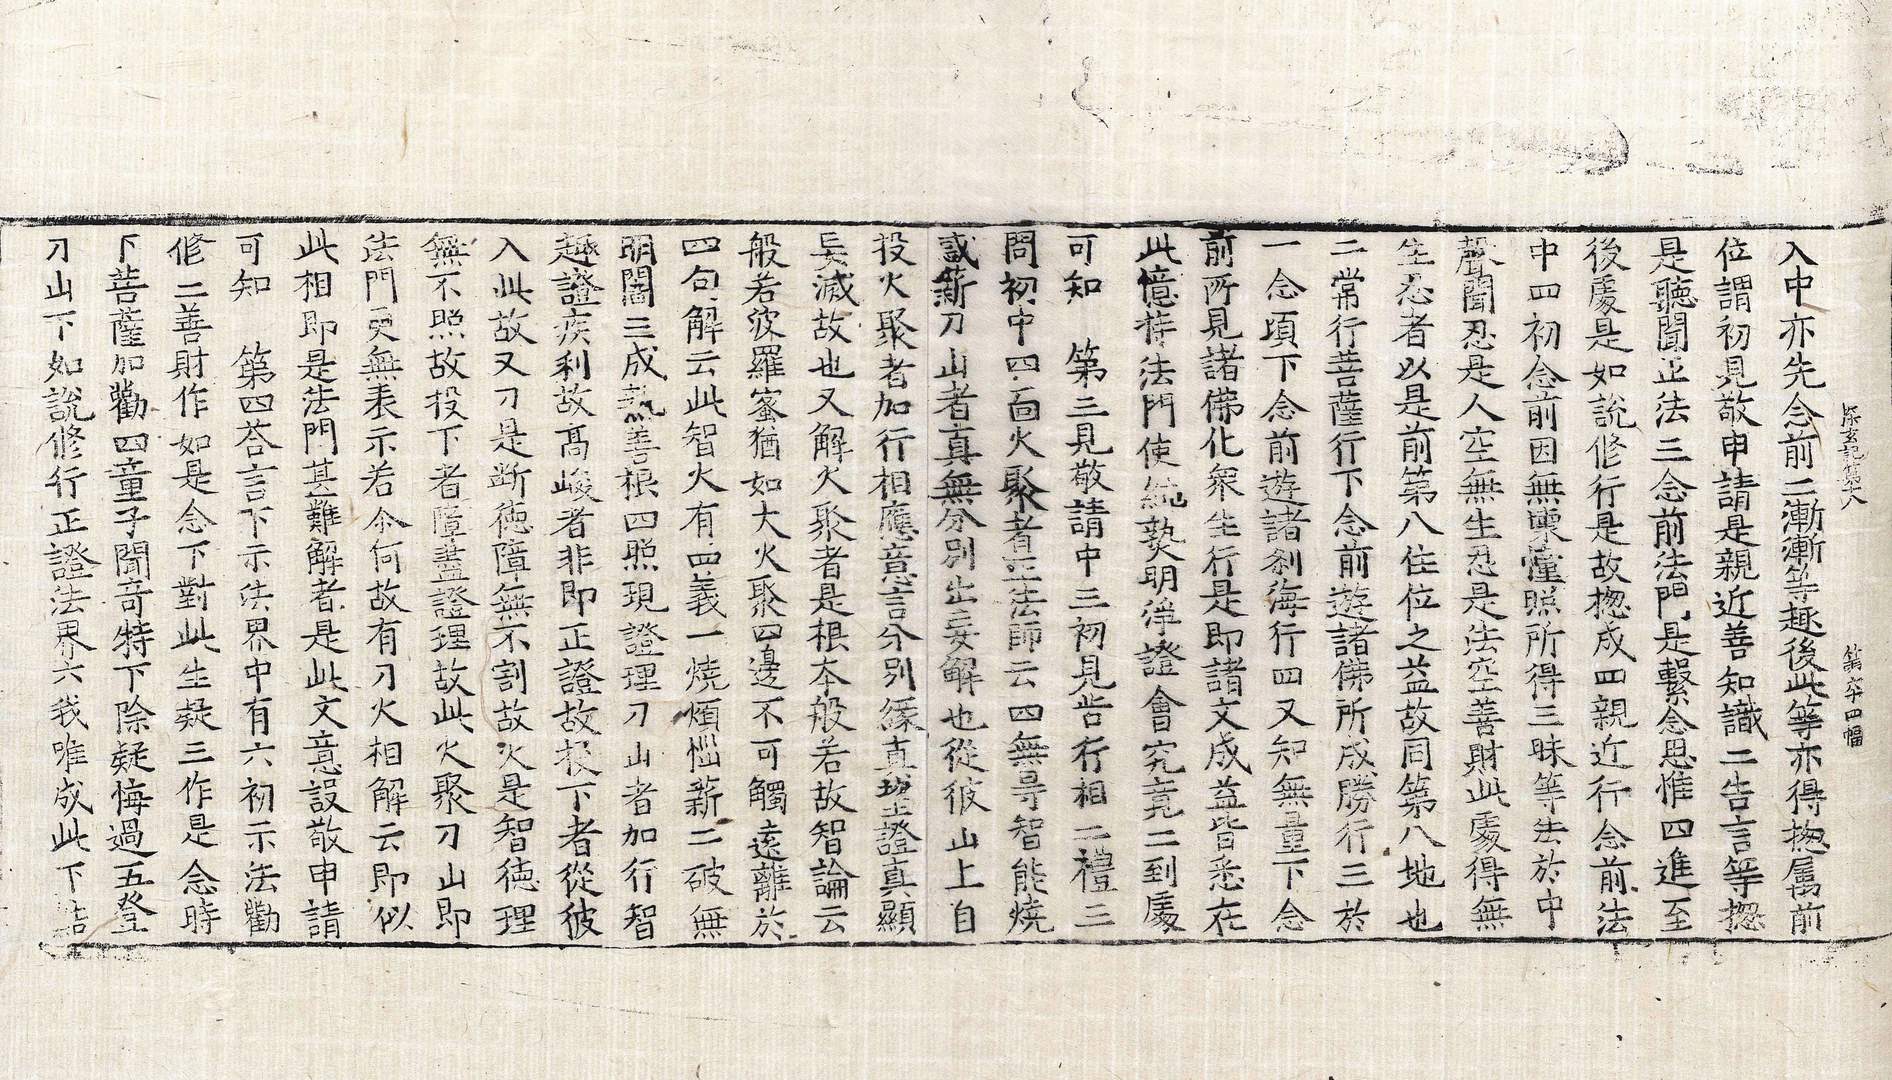 探玄記第十八　第六十四幅
入中亦先念前二漸漸等趣後此等亦得揔屬前
位謂初見敬申請是親近善知識二告言等揔
是聽聞正法三念前法門是繫念思惟四進至
後處是如說修行是故揔成四親近行念前法
中四初念前因無稟憧照所得三昧等法於中
聲聞忍是人空無生忍是法空善財此處得無
生忍者以是前第八住位之益故同第八地也
二常行菩薩行下念前遊諸佛所成勝行三於
一念頃下念前遊諸刹海行四又知無量下念
前所見諸佛化衆生行是即諸文成益皆悉在
此憶持法門使純熟明淨證會究竟二到處
可知　第三見敬請中三初見苦行相二禮三
問初中四面火聚者意法師云四無㝵智能燒
惑薪刀山者真無分別出妄解也從彼山上自
投火聚者加行相應意言分別緣真望證真顯
妄滅故也又解火聚者是根本般若故智論云
般若波羅蜜猶如大火聚四邊不可觸遠離於
四句解云此智火有四義一燒煩惱薪二破無
明闇三成熟善根四照現證理刀山者加行智
趣證疾利故高峻者非即正證故投下者從彼
入此故又刀是斷徳障無不割故火是智徳理
無不照故投下者障盡證理故此火聚刀山即
法門更無表示若尒何故有刀火相解云即似
此相即是法門甚難解者是此文意設敬申請
可知　第四荅言下示法界中有六初示法勸
修二善財作如是念下對此生疑三作是念時
下菩薩加勸四童子聞奇特下除疑悔過五登
刀山下如說修行正證法界六我唯成此下結